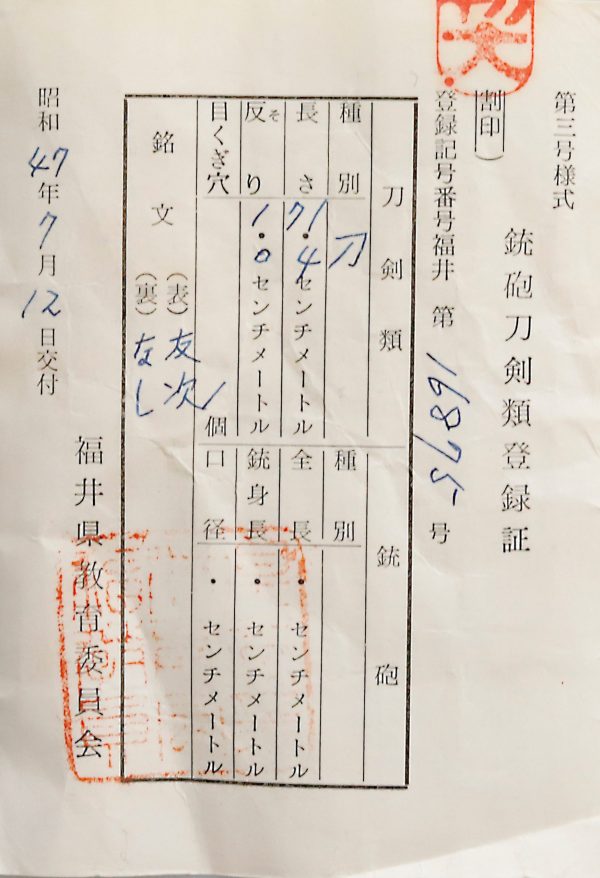 第三号様式
銃砲刀剣類登録証
割印）
登録記号番号福井 第 号
刀剣類
種別 刀
長さ 71.4センチメートル
反り 1.0センチメートル
そ
目くぎ穴 1個
銘文 （表）友次
（裏）なし
銃砲
種別
全長 ・ センチメートル
銃身長 ・ センチメートル
口径 ・ センチメートル
昭和47年7月12日交付
福井県教育委員会